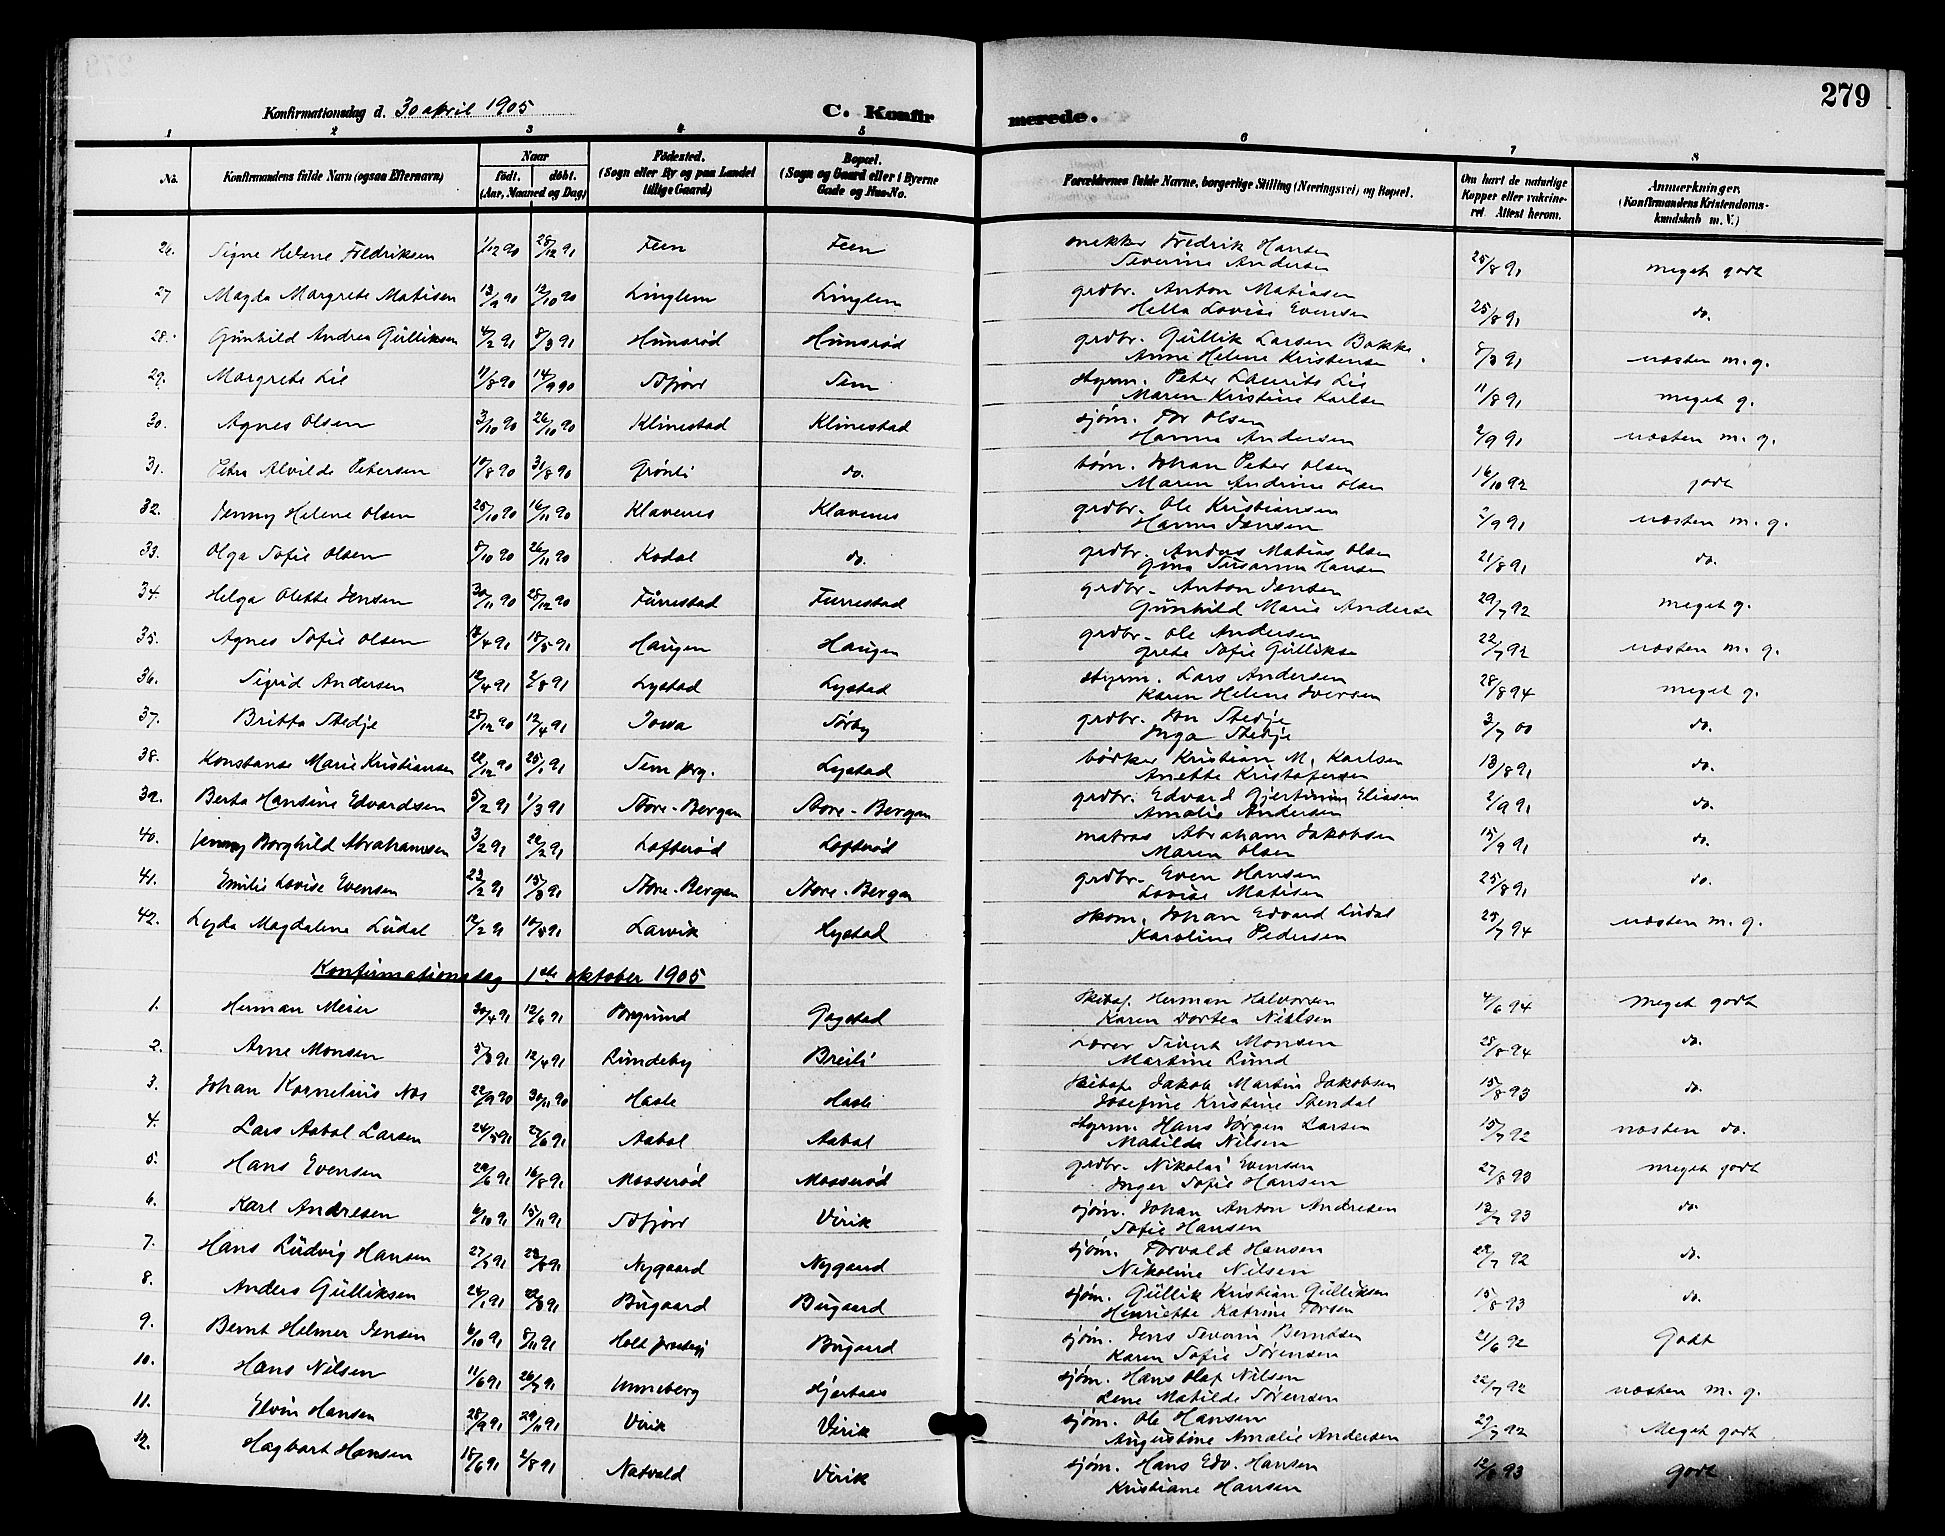 279
Konfirmationsdag d. 30 april 1905
C. Konfirmerede.
1 2 3 4 5 6 7 8
No.
Konfirmandens fulde Navn (ogsaa Efternavn)
Naar
født. døbt.
(Aar, Maaned og Dag)
Fødested.
(Sogn eller By og paa Landet tillige Gaard)
Bopæl.
(Sogn og Gaard eller i Byerne Gade og Hus-No.
Forældrenes fulde Navne, borgerlige Stilling (Næringsvei) og Bopæl.
Om havt de naturlige Kopper eller vakcineret. Attest herom.
Anmerkninger.
(Konfirmandens Kristendomskundskab m. V.)
26. Signe Helene Fredriksen 1/12 90 28/12 91 Feen Feen snekker Fredrik Hansen Severine Andersen 25/8 91 meget godt
27 Magda Margrete Matisen 13/9 90 12/10 90 Linglem Linglem grdbr. Anton Matiasen Hella Lovise Evensen 25/8 91 do.
28. Gunhild Andrea Gulliksen 4/2 91 8/3 91 Hunsrød Hunsrød grdbr. Gullik Larsen Bakke Anne Helene Kristensen 8/3 91 næsten m. g.
29. Margrete Lie 11/8 90 14/9 90 Sfjorr Sem styrm. Peter Laurits Lie Maren Kristine Karlsen 11/8 91 meget g.
30. Agnes Olsen 3/10 90 26/10 90 Klinestad Klinestad sjøm. Tor Olsen Hanna Andersen 2/9 91 næsten m. g.
31. Petra Alvilde Petersen 10/8 90 31/8 90 Grønli do. tøm. Johan Peter Olsen Maren Andrine Olsen 16/10 92 godt
32. Jenny Helene Olsen 25/10 90 16/11 90 Klavenes Klavenes grdbr. Ole Kristiansen Hanna Jensen 2/9 91 næsten m. g.
33. Olga Sofie Olsen 8/10 90 26/11 90 Kodal do. grdbr. Anders Matias Olsen Gina Susanna Hansen 21/8 91 do.
34. Helga Olette Jensen 30/11 90 28/12 90 Furrestad Furrestad grdbr. Anton Jensen Gunhild Marie Anderse 29/7 92 meget g.
35. Agnes Sofie Olsen 12/4 91 18/5 91 Haugen Haugen grdbr. Ole Andersen Grete Sofie Gullikse 22/7 92 næsten m. g.
36. Sigrid Andersen 12/4 91 2/8 91 Lystad Lystad styrm. Lars Andersen Karen Helene Iversen 28/8 94 meget g.
37. Britta Stedje 28/12 90 12/4 91 Iowa Sørby grdbr. Jon Stedje Inga Stedje 3/7 00 do.
38. Konstanse Marie Kristiansen 22/12 90 25/1 91 Sem prg. Lystad bødker Kristian M. Karlsen Anette Kristofersen 13/8 91 do.
39. Berta Hansine Edvardsen 5/2 91 1/3 91 Store-Bergan Store-Bergan grdbr. Edvard Gjertinius Eliasen Amalie Andersen 2/9 91 do.
40. Jenny Borghild Abrahamsen 3/2 91 22/2 91 Lofterød Lofterød matros Abraham Jakobsen Maren Olsen 15/9 91 do.
41. Emilie Lovise Evensen 23/2 91 15/3 91 Store-Bergan Store-Bergan grdbr. Even Hansen Lovise Matisen 25/8 91 do.
42. Lyda Magdalena Ludal 12/2 91 10/5 91 Larvik Lystad skom. Johan Edvard Ludal Karoline Pedersen 25/7 94 næsten m. g.
Konfirmationsdag 1ste oktober 1905
1. Herman Meier 30/4 91 12/6 91 Porsgrund Gogstad skibsf. Herman Halvorsen Karen Dortea Nielsen 4/6 94 Meget godt
2. Arne Monsen 5/3 91 12/4 91 Lundeby Breili Lærer Sivert Monsen Martine Lund 28/8 94 do.
3. Johan Kornelius Næs 22/9 90 30/11 90 Hasle Hasle skibsf. Jakob Martin Jakobsen Josefine Kristine Stendal 15/8 93 do.
4. Lars Aabol Larsen 24/5 91 27/6 91 Aabol Aabol styrm. Hans Jørgen Larsen Matilda Nilsen 15/7 92 næsten do.
5. Hans Evensen 20/6 91 16/8 91 Mosserød Mosserød grdbr. Nikolai Evensen Inger Sofie Hansen 27/8 93 meget godt
6. Karl Andresen 6/10 91 15/11 91 Sfjorr Virik sjøm. Johan Anton Andresen Sofie Hansen 12/7 93 do.
7. Hans Ludvig Hansen 27/5 91 23/8 91 Nygaard Nygaard sjøm. Torvald Hansen Nikoline Nilsen 22/7 92 do.
8. Anders Gulliksen 24/1 91 22/3 91 Bugaard Bugaard sjøm. Gullik Kristian Gulliksen Henriette Katrine Torsen 15/8 93 do.
9. Bernt Helmer Jensen 6/10 91 8/11 91 Holt prstegj Bugaard sjøm. Jens Severin Berntsen Karen Sofie Sørensen 21/6 92 Godt
10. Hans Nilsen 11/6 91 26/7 91 Unneberg Hjertaas sjøm. Hans Olaf Nilsen Lene Matilde Sørensen 22/7 92 næsten m. g.
11. Elvin Hansen 28/9 91 29/11 91 Virik Virik sjøm. Ole Hansen Augustine Amalie Andersen 29/7 92 Meget godt
12. Hagbart Hansen 18/6 91 2/8 91 Natvald Virik sjøm. Hans Edv. Hansen Kristiane Hansen 12/8 93 Godt